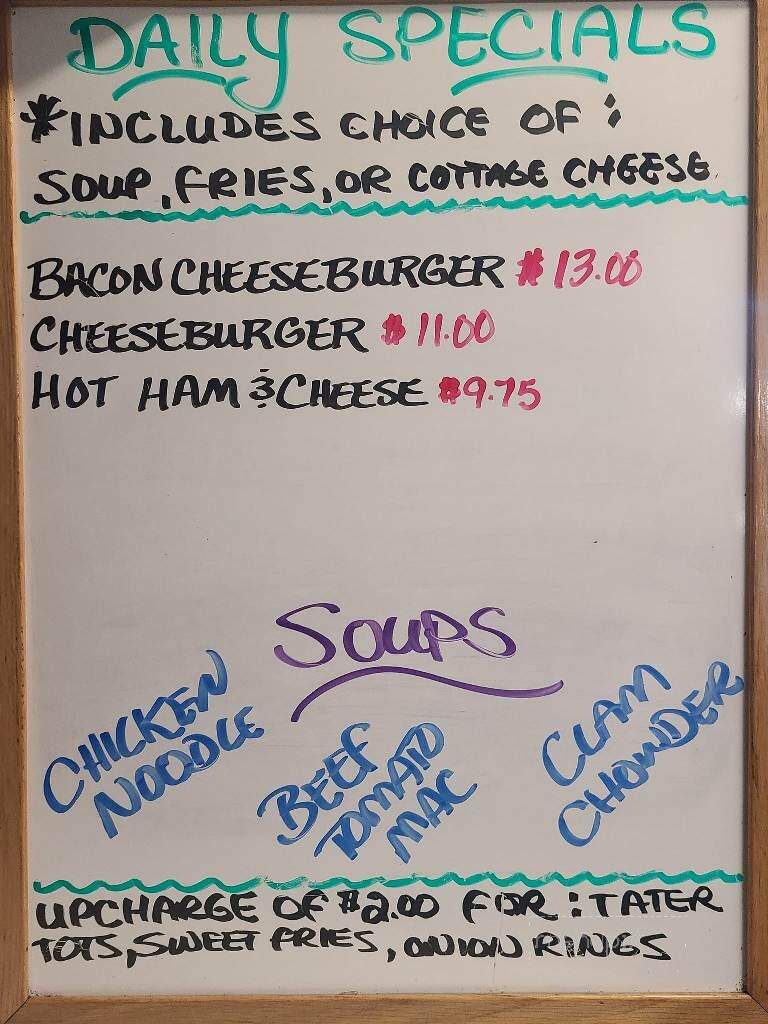 DAILY SPECIALS
*INCLUDES CHOICE OF :
SOUP, FRIES, OR COTTAGE CHEESE
BACON CHEESEBURGER $13.00
CHEESEBURGER $11.00
HOT HAM & CHEESE $9.75
SOUPS
CHICKEN
NOODLE
BEEF
TOMATO
MAC
CLAM
CHOWDER
UPCHARGE OF $2.00 FOR : TATER
TOTS, SWEET FRIES, ONION RINGS